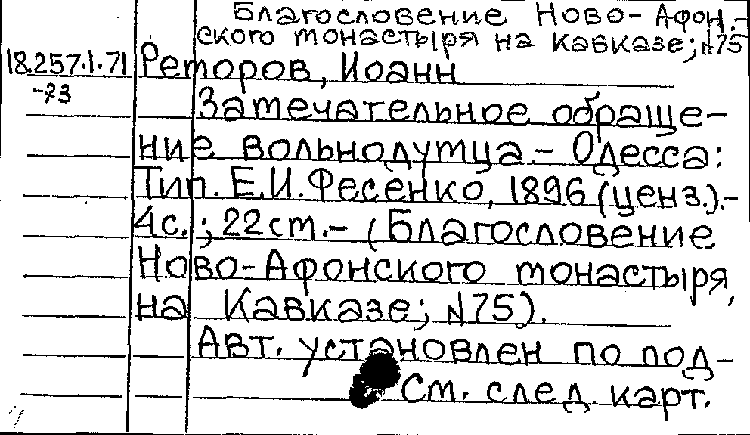 Благословение Ново-Афон-
ского монастыря на Кавказе; №75
18.257.1.71 Реторов, Иоанн
-73
Замечательное обраще-
ние вольнодумца.- Одесса:
Тип. Е.И.Фесенко, 1896 (ценз.).-
4с.; 22см.- (Благословение
Ново-Афонского монастыря,
на Кавказе; №75).
Авт. установлен по под-
См. след. карт.